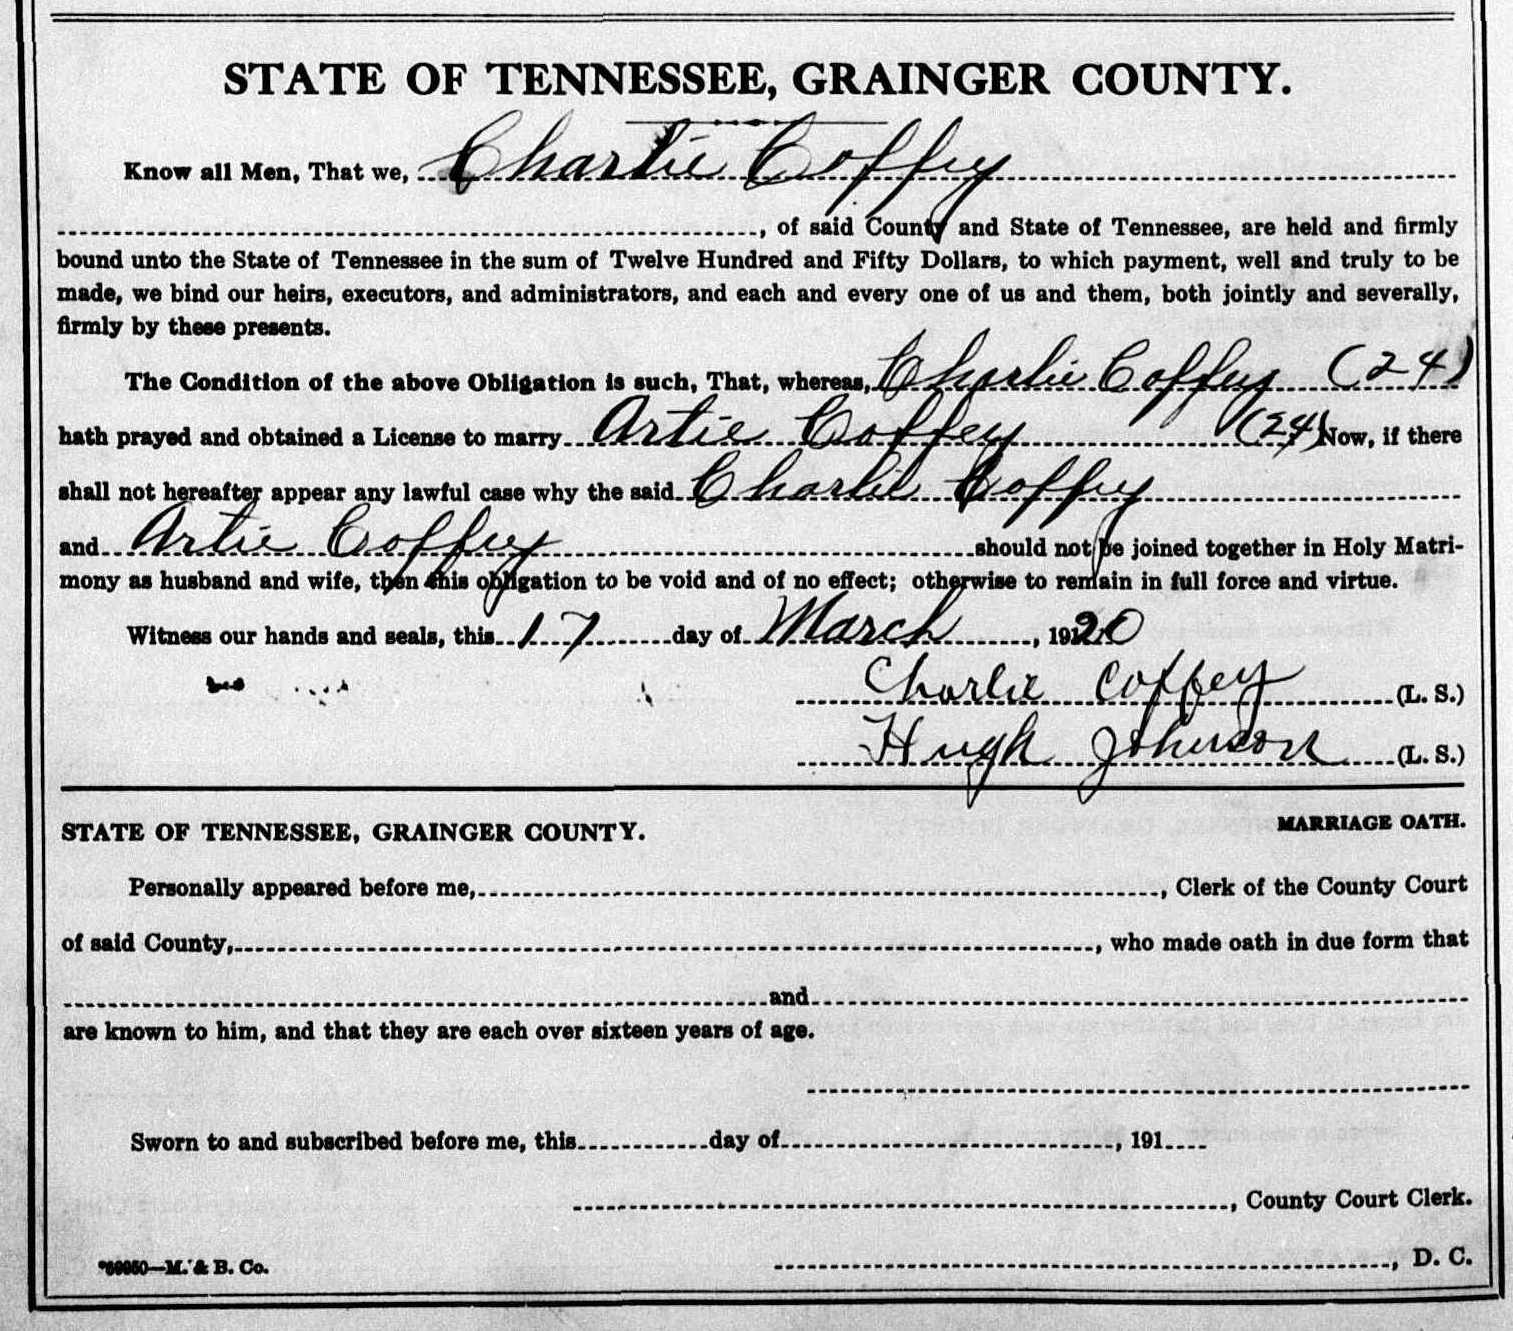 STATE OF TENNESSEE, GRAINGER COUNTY.
Know all Men, That we, Charlie Coffey
, of said County and State of Tennessee, are held and firmly
bound unto the State of Tennessee in the sum of Twelve Hundred and Fifty Dollars, to which payment, well and truly to be
made, we bind our heirs, executors, and administrators, and each and every one of us and them, both jointly and severally,
firmly by these presents.
The Condition of the above Obligation is such, That, whereas, Charlie Coffey (24)
hath prayed and obtained a License to marry Artie Coffey (24) Now, if there
shall not hereafter appear any lawful case why the said Charlie Coffey
and Artie Coffey should not be joined together in Holy Matri-
mony as husband and wife, then this obligation to be void and of no effect; otherwise to remain in full force and virtue.
Witness our hands and seals, this 17 day of March, 1920
Charlie Coffey (L. S.)
Hugh Johnson (L. S.)
STATE OF TENNESSEE, GRAINGER COUNTY. MARRIAGE OATH.
Personally appeared before me, , Clerk of the County Court
of said County, , who made oath in due form that
and
are known to him, and that they are each over sixteen years of age.
Sworn to and subscribed before me, this day of , 191
, County Court Clerk.
M. & B. Co. , D. C.